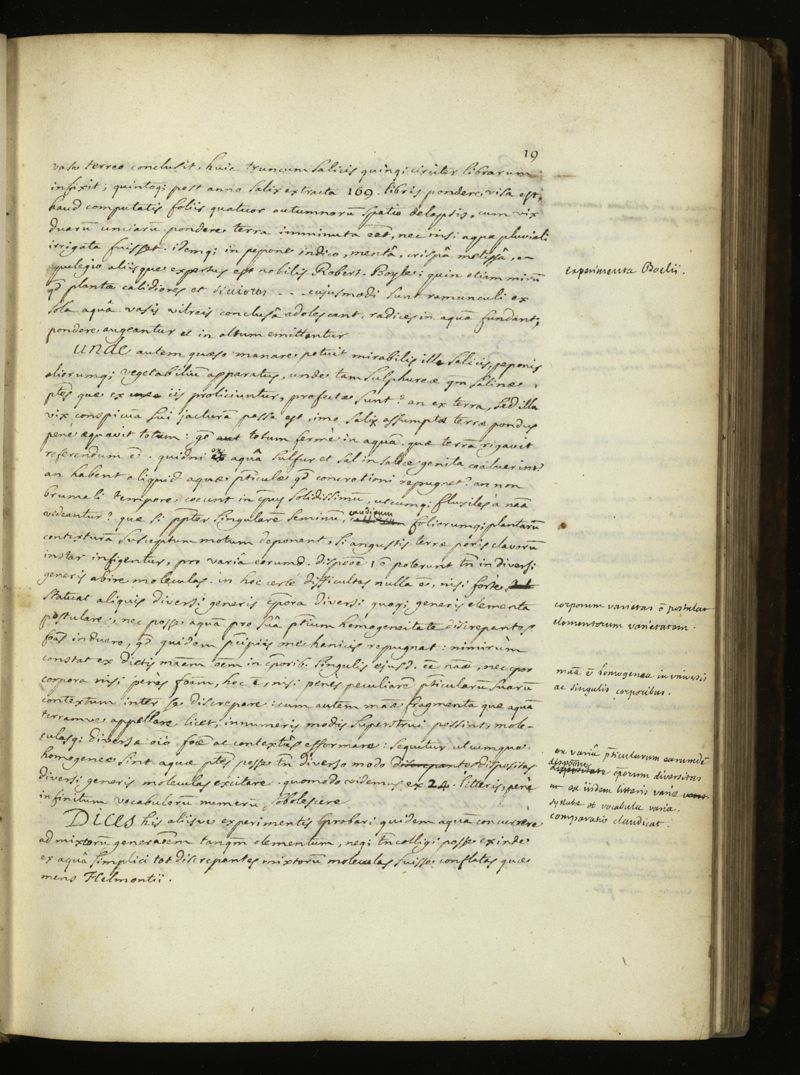 19
vase terreo conclusit. huic truncum salicis quinq; circiter librarum
infixit; quintoq; post anno salix extracta 169. libris pondere visa est,
haud computatis foliis quatuor autumnorū spatio delapsis, cum vix
duarū unciarū pondere terra imminuta eēt, nec nisi aqua pluviali
irrigata fuisset. idemq; in pepone indico, mentâ, crispâ melissâ, ac
pulegio aliisque expertus est nobilis Robert. Boyle; quin etiam mirū
qd plantæ calidiores et siciores - - - cujusmodi sunt ranunculi ex
sola aquâ vasis vitreis conclusâ adolescant. radices in aquā fundant,
pondere augeantur et in altum emittantur
Unde autem quæso manare potuit mirabilis ille salicis, peponis
aliorumq; vegetabiliū apparatus, unde tam sulphureæ qm salinæ,
ptes quæ ex iis proliciuntur, profectæ sunt? an ex terra, sed illa
vix conspicuā sui jacturā passa est, imo salix assumptæ terræ pondus
penè æquavit totum: go totum fermè in aquā, quæ terrā rigavit
referendum ē. quidni ex aquâ sulfur et sal in salice genita coaluerint?
an habent aliquid aquæ pticulæ qd concretioni repugnet? an non
brumali tempore, coeunt in cpus solidissimū, utcumq; fluxiles a nāā
videantur? quæ si ppter singularē seminū, caudicum foliorumq; plantarū
contexturā susceptum motum deponant, si angustis terræ poris clavorū
instar infigentur, pro variâ earumd. dispone poterunt tn in diversi
generis abire moleculas. in hoc certè difficultas nulla ē, nisi fortè
statuat aliquis diversi generis cpora diversi quoq; generis elementa
postulare, nec posse aquā pro suâ ptium homogeneitate discrepantes
foas induere, qd quidem pcipiis mechanicis repugnat: nimirùm
constat ex dictis māem oem in cporib. singulis ejusd. eē naæ, nec
corpora nisi penès foam, hoc ē, nisi penès peculiarē pticularū suarū
contextum inter se discrepare: cum autem māæ fragmenta quæ aquā
terramve appellare licet, innumeris modis superstrui possint, mole-
culasq; diversæ oio foæ ac contextûs efformare: sequitur utcumque
homogeneæ sint aquæ ptes posse tn diverso modo dispositas
diversi generis moleculas excitare. quomodo videmus ex 24. litteris, penè
infinitum vocabulorū numerū sobolescere
Dices his aliisve experimentis cprobari quidem aquā concurrere
ad mixtorū generaōem tanqm elementum, neq; tn colligi posse exinde
ex aquâ simplici tot discrepantes mixtorū moleculas fuisse conflatas quæ
mens Helmontii.
experimenta Boelii.
corporum varietas ō postulat
elementorum varietatem.
māā ē homogenea in universis
ac singulis corporibus.
ex variâ pticularum earumdē
dispone cporum diversitas
ut ex iisdem litteris variæ
syllabæ et vocabula varia.
comparatio claudicat.